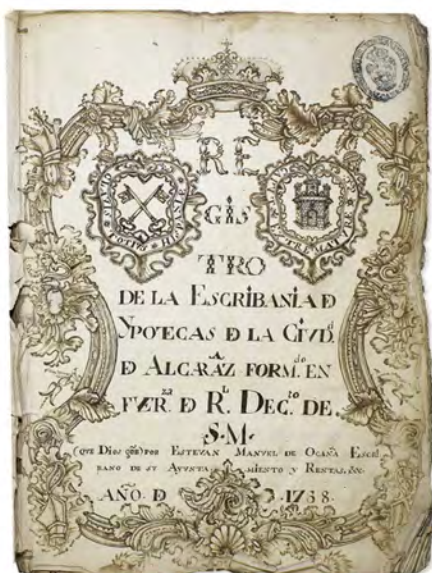 RE
GIS
TRO
DE LA ESCRIBANIA D
YPOTECAS D LA CIVD.d
D ALCARAZ FORM.da EN
FVER.za D R.l DEC.to DE
S.M.
(QVE DIOS gũe) POR ESTEVAN MANVEL DE OCAÑA ESCRI
BANO DE SV AYVNTAMIENTO y RENTAS.
AÑO D 1768.